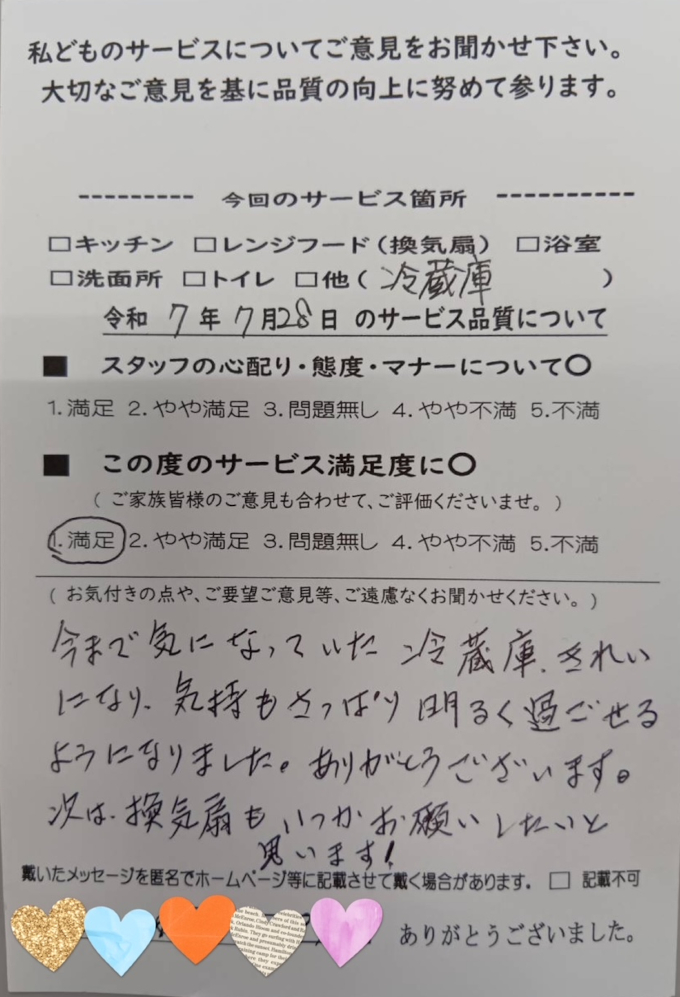 私どものサービスについてご意見をお聞かせ下さい。
大切なご意見を基に品質の向上に努めて参ります。
--------- 今回のサービス箇所 ----------
□キッチン □レンジフード(換気扇) □浴室
□洗面所 □トイレ □他( 冷蔵庫 )
令和 7 年 7 月28 日 のサービス品質について
■ スタッフの心配り・態度・マナーについて〇
1.満足 2.やや満足 3.問題無し 4.やや不満 5.不満
■ この度のサービス満足度に〇
( ご家族皆様のご意見も合わせて、ご評価くださいませ。 )
1.満足 2.やや満足 3.問題無し 4.やや不満 5.不満
( お気付きの点や、ご要望ご意見等、ご遠慮なくお聞かせください。 )
今まで気になっていた 冷蔵庫、きれい
になり、気持もさっぱり 明るく過ごせる
ようになりました。ありがとうございます。
次は、換気扇も いつか お願いしたいと
思います!
戴いたメッセージを匿名でホームページ等に記載させて戴く場合があります。 □ 記載不可
ありがとうございました。